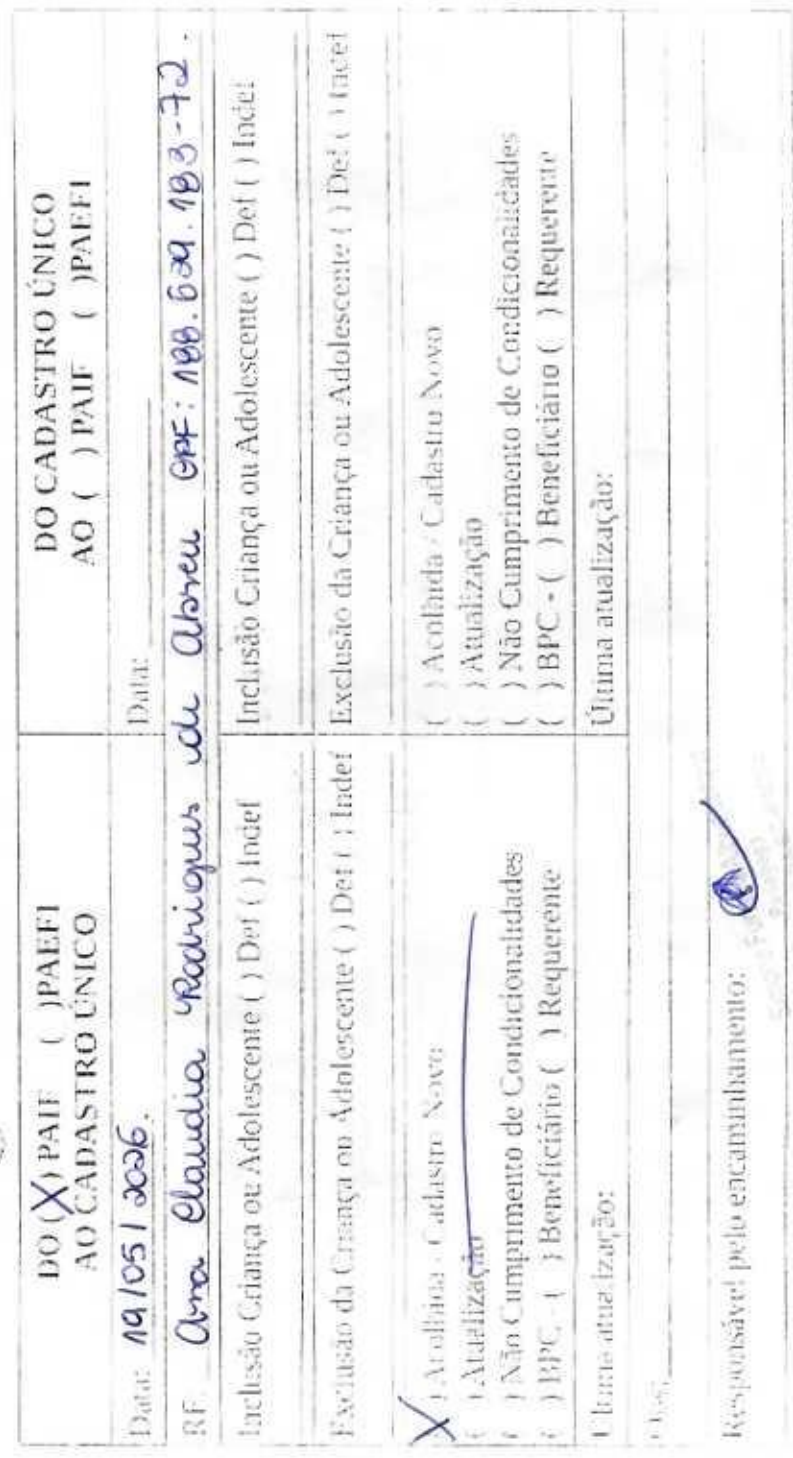 DO (X) PAIF ( )PAEFI
AO CADASTRO ÚNICO
DO CADASTRO ÚNICO
AO ( ) PAIF ( )PAEFI
Data: 19/05/2026.
Data:
RF. Ana Claudia Rodrigues de Abreu CPF: 188.629.183-72.
Inclusão Criança ou Adolescente ( ) Def ( ) Indef
Inclusão Criança ou Adolescente ( ) Def ( ) Indef
Exclusão da Criança ou Adolescente ( ) Def ( ) Indef
Exclusão da Criança ou Adolescente ( ) Def ( ) Indef
(X) Acolhida - Cadastro Novo
( ) Atualização
( ) Não Cumprimento de Condicionalidades
( ) BPC - ( ) Beneficiário ( ) Requerente
( ) Acolhida - Cadastro Novo
( ) Atualização
( ) Não Cumprimento de Condicionalidades
( ) BPC - ( ) Beneficiário ( ) Requerente
Última atualização:
Última atualização:
Responsável pelo encaminhamento: